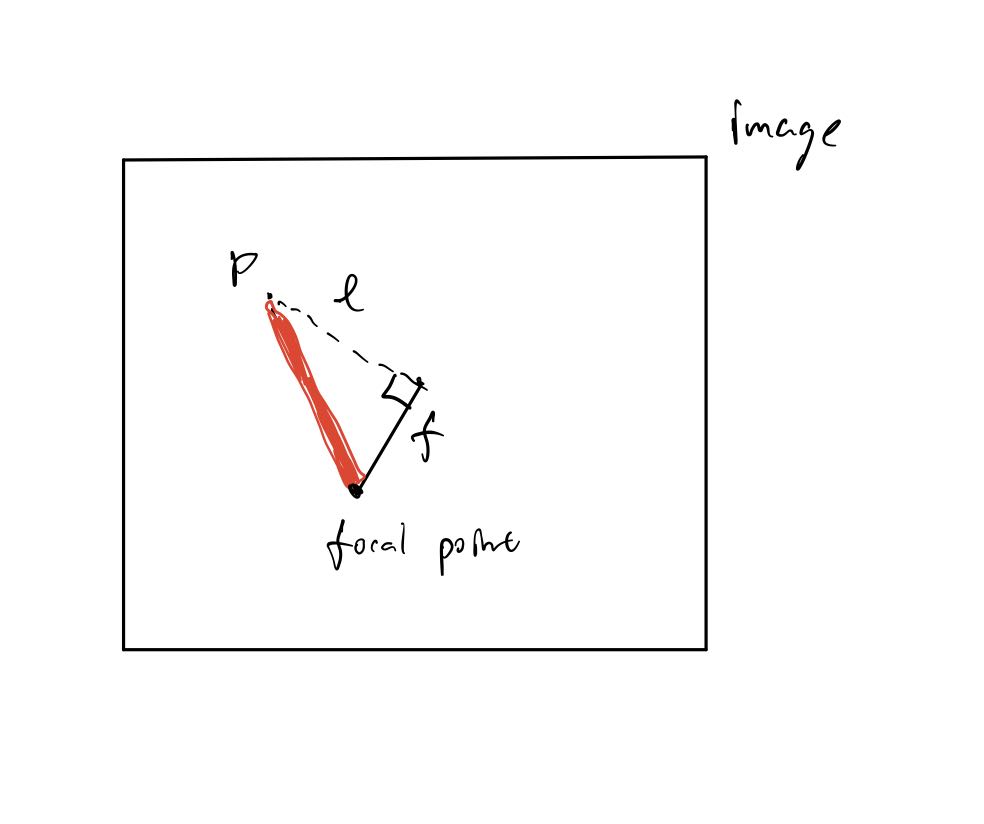 Image
P
l
f
focal point